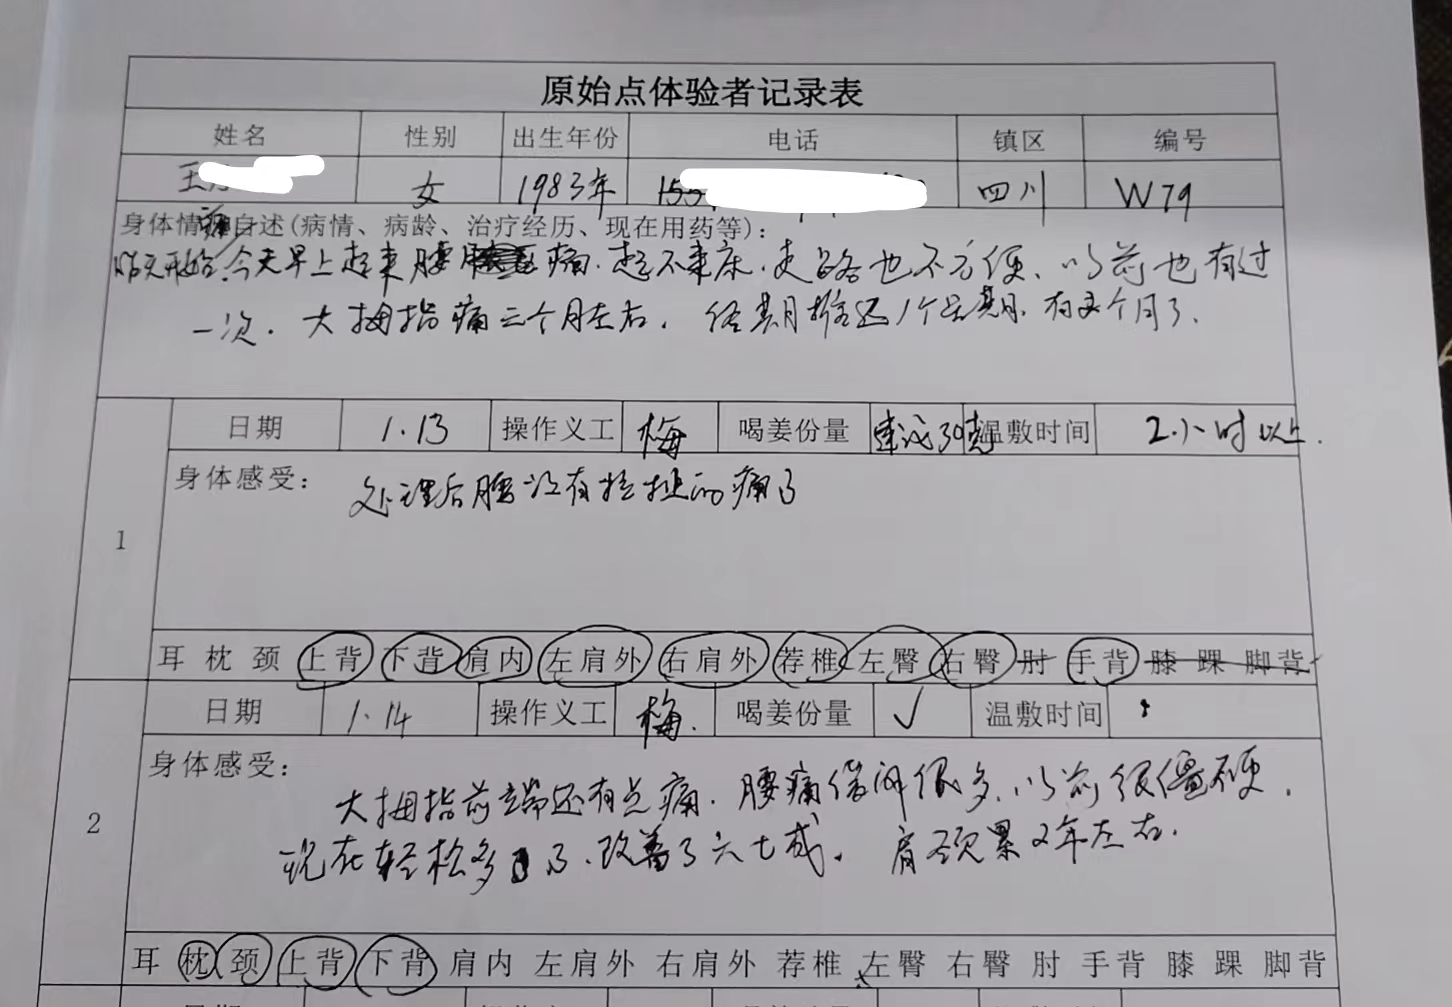 原始点体验者记录表
姓名 性别 出生年份 电话 镇区 编号
王 女 1983年 155 四川 W79
身体情 自述(病情、病龄、治疗经历、现在用药等):
昨天开始 痛 今天早上起来腰 痛.起不来床.走路也不方便、以前也有过
一次. 大拇指痛三个月左右. 经期推迟1个星期 有 个月了.
1
日期 1.13 操作义工 梅 喝姜份量 建议30克 温敷时间 2小时以上.
身体感受: 处理后腰没有拉扯的痛了
耳 枕 颈 上背 下背 肩内 左肩外 右肩外 荐椎 左臀 右臀 肘 手背 膝 踝 脚背
2
日期 1.14 操作义工 梅. 喝姜份量 ✓ 温敷时间
身体感受:
大拇指前端还有点痛. 腰痛 很多、以前很僵硬.
现在轻松多了、改善了六七成. 肩颈累2年左右.
耳 枕 颈 上背 下背 肩内 左肩外 右肩外 荐椎 左臀 右臀 肘 手背 膝 踝 脚背